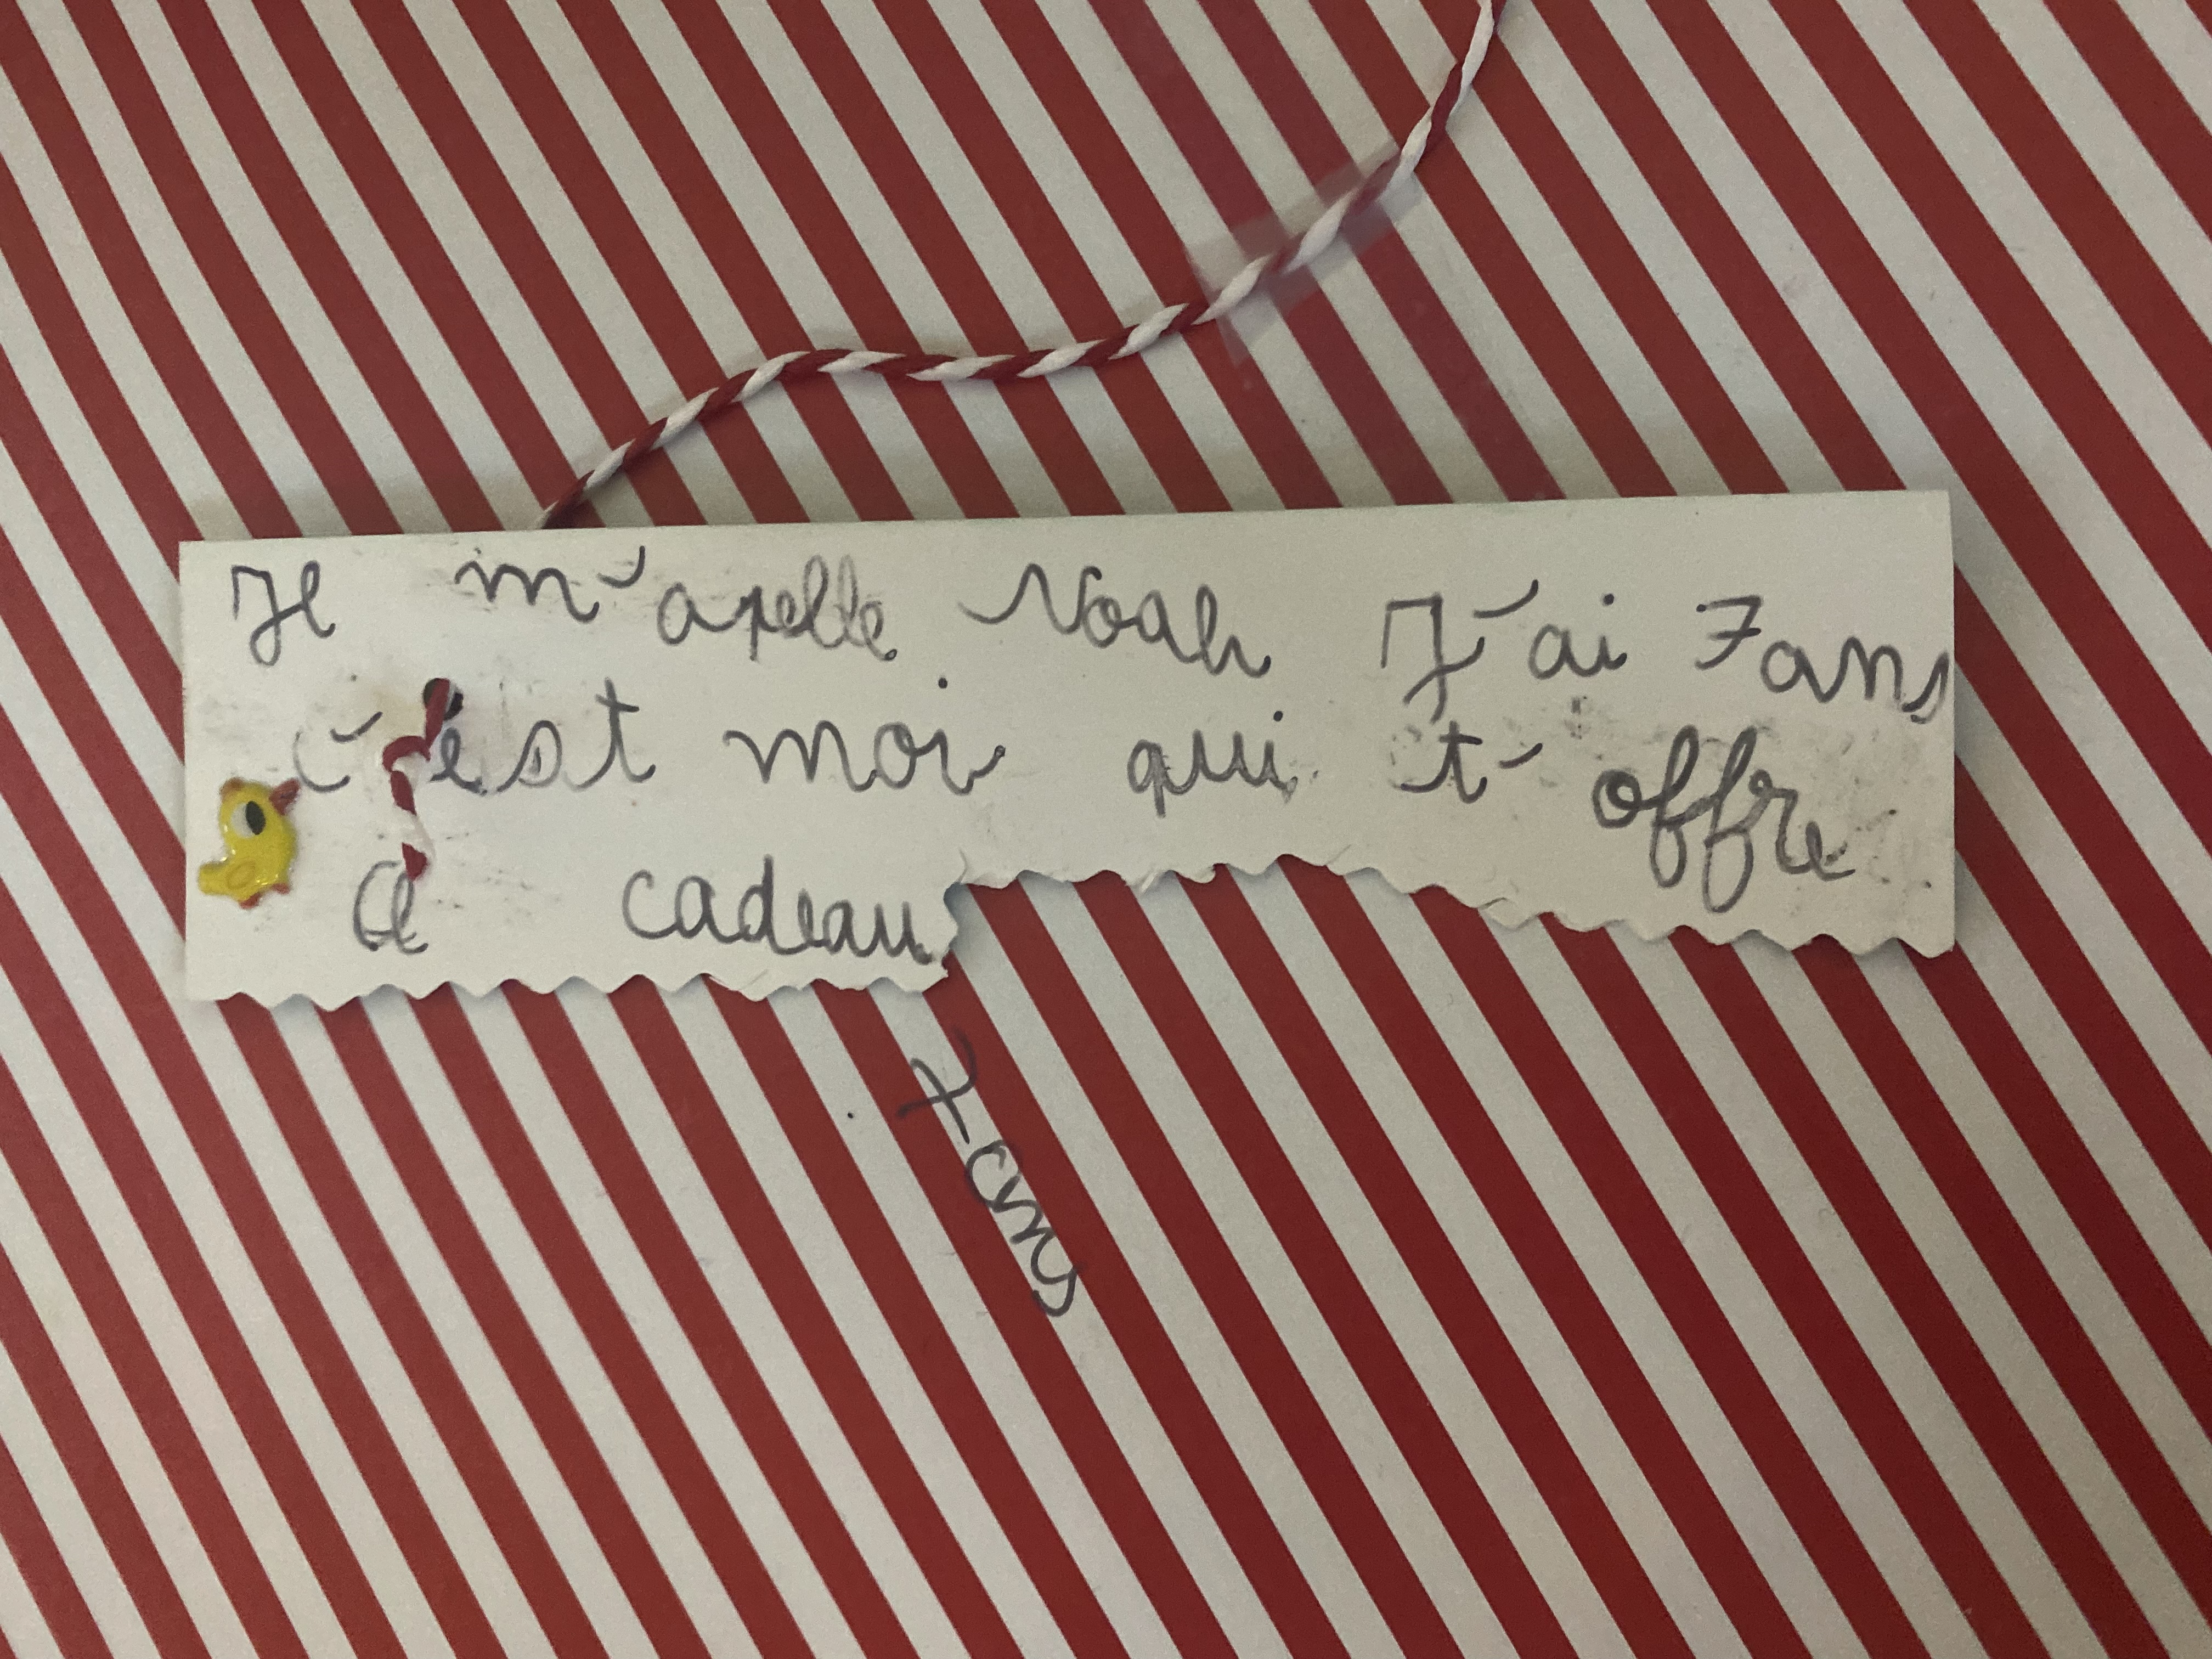 Je m'apelle Noah J'ai 7 ans
c'est moi qui t'offre
ce cadeau
7 ans